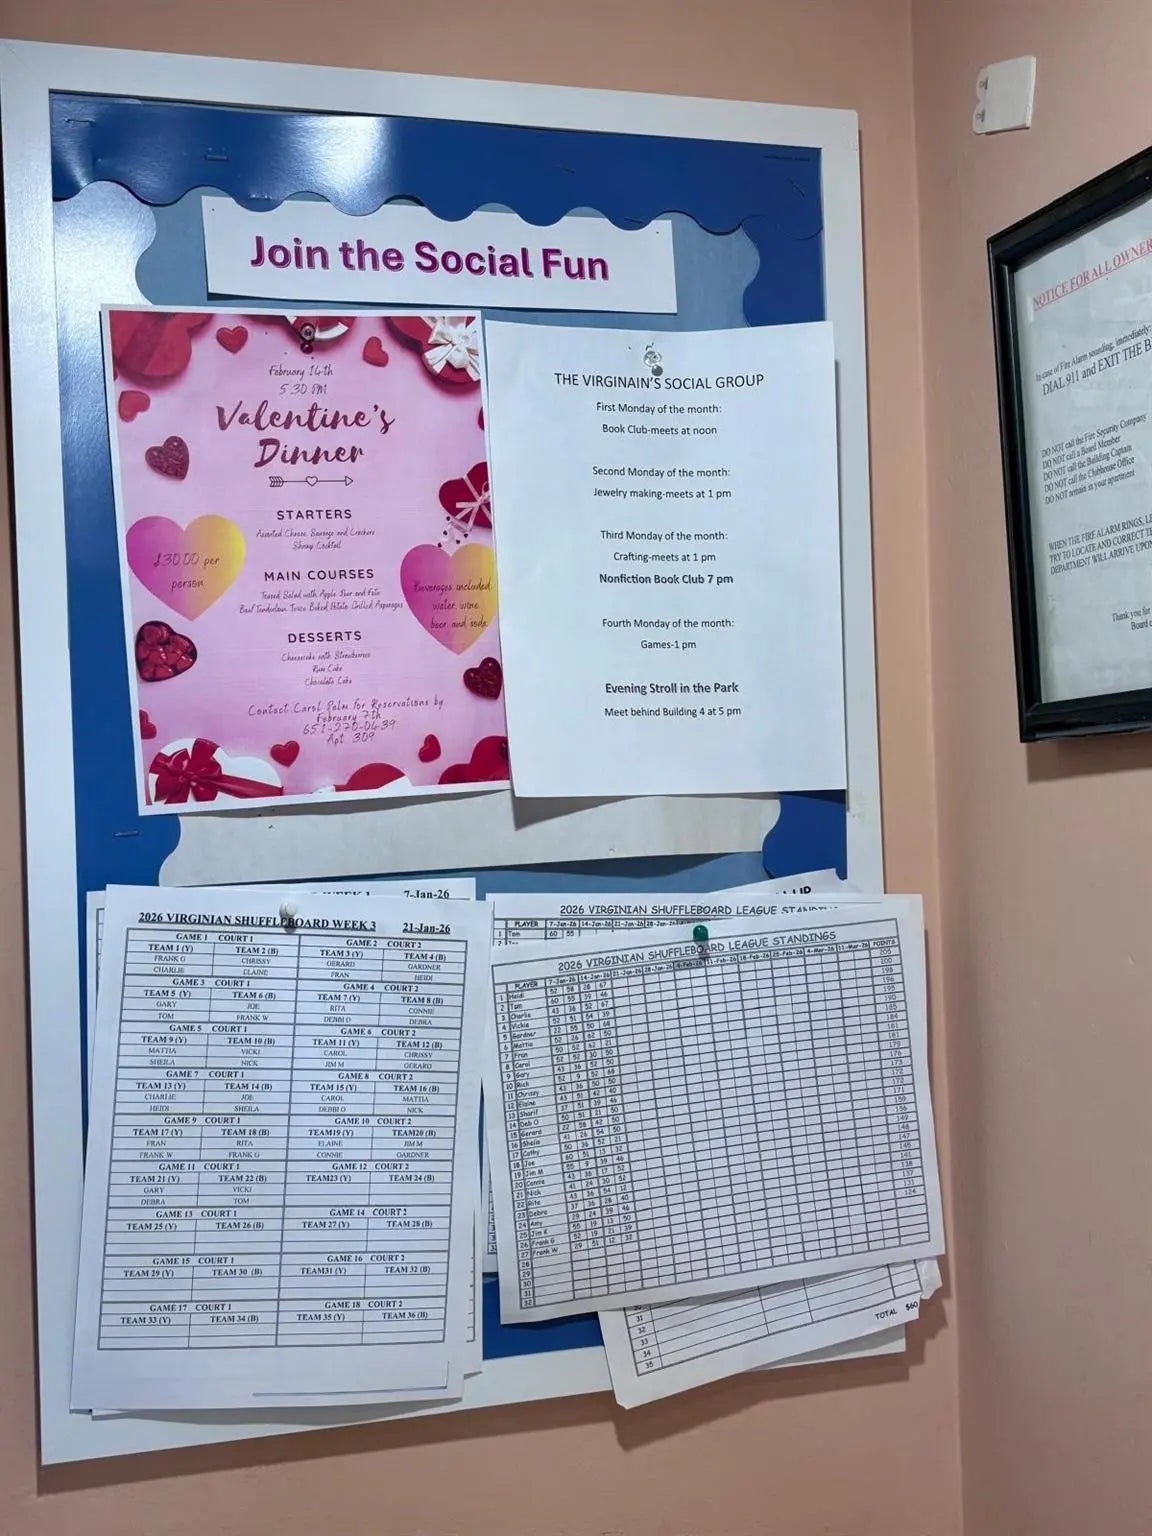 Join the Social Fun
February 14th
5:30 PM
Valentine's
Dinner
STARTERS
Assorted Cheese, Sausage and Crackers
Shrimp Cocktail
$30.00 per
person
MAIN COURSES
Tossed Salad with Apple Pear and Feta
Beef Tenderloin, Twice Baked Potato, Grilled Asparagus
Beverages included
water, wine,
beer, and soda
DESSERTS
Cheesecake with Strawberries
Rum Cake
Chocolate Cake
Contact Carol Palm for Reservations by
February 7th
651-270-0439
Apt. 309
THE VIRGINAIN'S SOCIAL GROUP
First Monday of the month:
Book Club-meets at noon
Second Monday of the month:
Jewelry making-meets at 1 pm
Third Monday of the month:
Crafting-meets at 1 pm
Nonfiction Book Club 7 pm
Fourth Monday of the month:
Games-1 pm
Evening Stroll in the Park
Meet behind Building 4 at 5 pm
NOTICE FOR ALL OWNER
In case of Fire Alarm sounding, immediately:
DIAL 911 and EXIT THE B
DO NOT call the Fire Security Company
DO NOT call a Board Member
DO NOT call the Building Captain
DO NOT call the Clubhouse Office
DO NOT remain in your apartment
WHEN THE FIRE ALARM RINGS, LE
TRY TO LOCATE AND CORRECT TH
DEPARTMENT WILL ARRIVE UPON
Thank you for
Board o
7-Jan-26
2026 VIRGINIAN SHUFFLEBOARD WEEK 3 21-Jan-26
GAME 1 COURT 1 GAME 2 COURT 2
TEAM 1 (Y) TEAM 2 (B) TEAM 3 (Y) TEAM 4 (B)
FRANK G CHRISSY GERARD GARDNER
CHARLIE ELAINE FRAN HEIDI
GAME 3 COURT 1 GAME 4 COURT 2
TEAM 5 (Y) TEAM 6 (B) TEAM 7 (Y) TEAM 8 (B)
GARY JOE RITA CONNIE
TOM FRANK W DEBBI O DEBRA
GAME 5 COURT 1 GAME 6 COURT 2
TEAM 9 (Y) TEAM 10 (B) TEAM 11 (Y) TEAM 12 (B)
MATTIA VICKI CAROL CHRISSY
SHEILA NICK JIM M GERARD
GAME 7 COURT 1 GAME 8 COURT 2
TEAM 13 (Y) TEAM 14 (B) TEAM 15 (Y) TEAM 16 (B)
CHARLIE JOE CAROL MATTIA
HEIDI SHEILA DEBBI O NICK
GAME 9 COURT 1 GAME 10 COURT 2
TEAM 17 (Y) TEAM 18 (B) TEAM19 (Y) TEAM20 (B)
FRAN RITA ELAINE JIM M
FRANK W FRANK G CONNIE GARDNER
GAME 11 COURT 1 GAME 12 COURT 2
TEAM 21 (Y) TEAM 22 (B) TEAM23 (Y) TEAM 24 (B)
GARY VICKI
DEBRA TOM
GAME 13 COURT 1 GAME 14 COURT 2
TEAM 25 (Y) TEAM 26 (B) TEAM 27 (Y) TEAM 28 (B)
GAME 15 COURT 1 GAME 16 COURT 2
TEAM 29 (Y) TEAM 30 (B) TEAM31 (Y) TEAM 32 (B)
GAME 17 COURT 1 GAME 18 COURT 2
TEAM 33 (Y) TEAM 34 (B) TEAM 35 (Y) TEAM 36 (B)
2026 VIRGINIAN SHUFFLEBOARD LEAGUE
PLAYER 7-Jan-26 14-Jan-26 21-Jan-26 28-Jan-26
1 Tom 60 55
2026 VIRGINIAN SHUFFLEBOARD LEAGUE STANDINGS
PLAYER 7-Jan-26 14-Jan-26 21-Jan-26 28-Jan-26 4-Feb-26 11-Feb-26 18-Feb-26 25-Feb-26 4-Mar-26 11-Mar-26 POINTS
1 Heidi
2 Tom
3 Charlie
4 Vickie
5 Gardner
6 Mattia
7 Fran
8 Carol
9 Gary
10 Rick
11 Chrissy
12 Elaine
13 Sharif
14 Deb O
15 Gerard
16 Sheila
17 Cathy
18 Joe
19 Jim M
20 Connie
21 Nick
22 Rita
23 Debra
24 Amy
25 Jim K
26 Frank G
27 Frank W
28
29
30
31
32
31
32
33
34
35
TOTAL $60